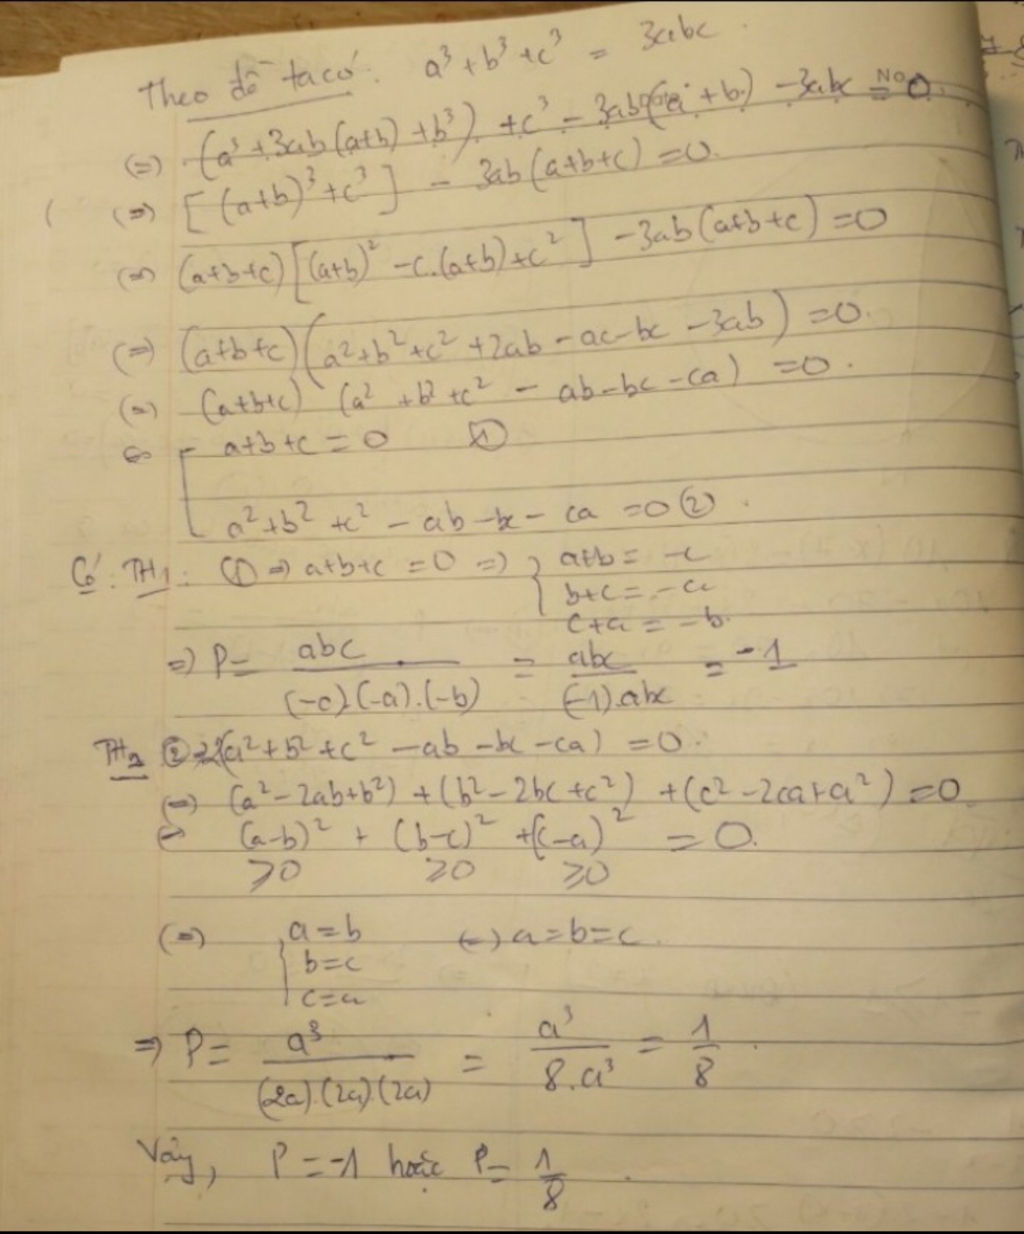 Theo đề ta có: a³ + b³ + c³ = 3abc.
(=) (a³ + 3ab(a+b) + b³) + c³ - 3ab(a + b) - 3abc = 0
(=) [(a+b)³ + c³] - 3ab(a+b+c) = 0.
(=) (a+b+c)[(a+b)² - c.(a+b) + c²] - 3ab(a+b+c) = 0
(=) (a+b+c)(a² + b² + c² + 2ab - ac - bc - 3ab) = 0.
(=) (a+b+c) (a² + b² + c² - ab - bc - ca) = 0.
⇔ [ a+b+c = 0 ①
a² + b² + c² - ab - bc - ca = 0 ②.
Có: TH1: ① => a+b+c = 0 => { a+b = -c
b+c = -a
c+a = -b.
=> P = abc / (-c).(-a).(-b) = abc / (-1).abc = -1
TH2 ② => 2(a² + b² + c² - ab - bc - ca) = 0.
(=) (a² - 2ab + b²) + (b² - 2bc + c²) + (c² - 2ca + a²) = 0
⇔ (a-b)² + (b-c)² + (c-a)² = 0.
≥0 ≥0 ≥0
(=) { a = b (=) a = b = c.
b = c
c = a
=> P = a³ / (2a).(2a).(2a) = a³ / 8.a³ = 1/8.
Vậy, P = -1 hoặc P = 1/8.